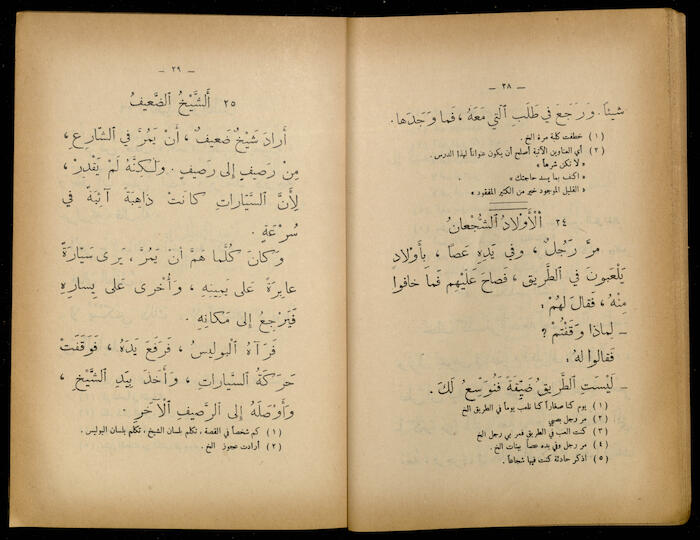 — ٢٨ —
شيئاً. وَرَجَعَ فِي طَلَبِ ٱلَّتِي مَعَهُ ، فَمَا وَجَدَهَا.
(١) خطفت كلبة مرة الخ.
(٢) أي العناوين الآتية أصلح أن يكون عنواناً لهذا الدرس.
« لا تكن شرهاً »
« اكتف بما يسد حاجتك »
« القليل الموجود خير من الكثير المفقود »
٢٤ ٱلْأَوْلَادُ ٱلشُّجْعَانُ
مَرَّ رَجُلٌ ، وَفِي يَدِهِ عَصاً ، بِأَوْلَادٍ
يَلْعَبُونَ فِي ٱلطَّرِيقِ ، فَصَاحَ عَلَيْهِم فَمَا خَافُوا
مِنْهُ ، فَقَالَ لَهُمْ :
ـ لِمَاذَا وَقَفْتُمْ ؟
فَقَالُوا لَهُ :
ـ لَيْسَتِ ٱلطَّرِيقُ ضَيِّقَةً فَنُوَسِّعُ لَكَ .
(١) يوم كنا صغاراً كنا نلعب يوماً في الطريق الخ
(٢) مر رجل بصبي
(٣) كنت العب في الطريق فمر بي رجل الخ
(٤) مر رجل وفي يده عصاً ببنات الخ.
(٥) اذكر حادثة كنت فيها شجاعاً .
— ٢٩ —
٢٥ أَلشَّيْخُ ٱلضَّعِيفُ
أَرَادَ شَيْخٌ ضَعِيفٌ ، أَنْ يَمُرَّ فِي ٱلشَّارِعِ ،
مِنْ رَصِيفٍ إِلَى رَصِيفٍ . وَلٰكِنَّهُ لَمْ يَقْدِرْ ،
لِأَنَّ ٱلسَّيَّارَاتِ كَانَتْ ذَاهِبَةً آئِبَةً فِي
سُرْعَةٍ .
وَكَانَ كُلَّمَا هَمَّ أَنْ يَمُرَّ ، يَرَى سَيَّارَةً
عَابِرَةً عَلَى يَمِينِهِ ، وَأُخْرَى عَلَى يَسَارِهِ
فَيَرْجِعُ إِلَى مَكَانِهِ .
فَرَآهُ ٱلْبُولِيسُ ، فَرَفَعَ يَدَهُ ، فَوَقَفَتْ
حَرَكَةُ ٱلسَّيَّارَاتِ ، وَأَخَذَ بِيَدِ ٱلشَّيْخِ ،
وَأَوْصَلَهُ إِلَى ٱلرَّصِيفِ ٱلْآخَرِ .
(١) كم شخصاً في القصة ، تكلم بلسان الشيخ ، تكلم بلسان البوليس .
(٢) أرادت عجوز الخ .